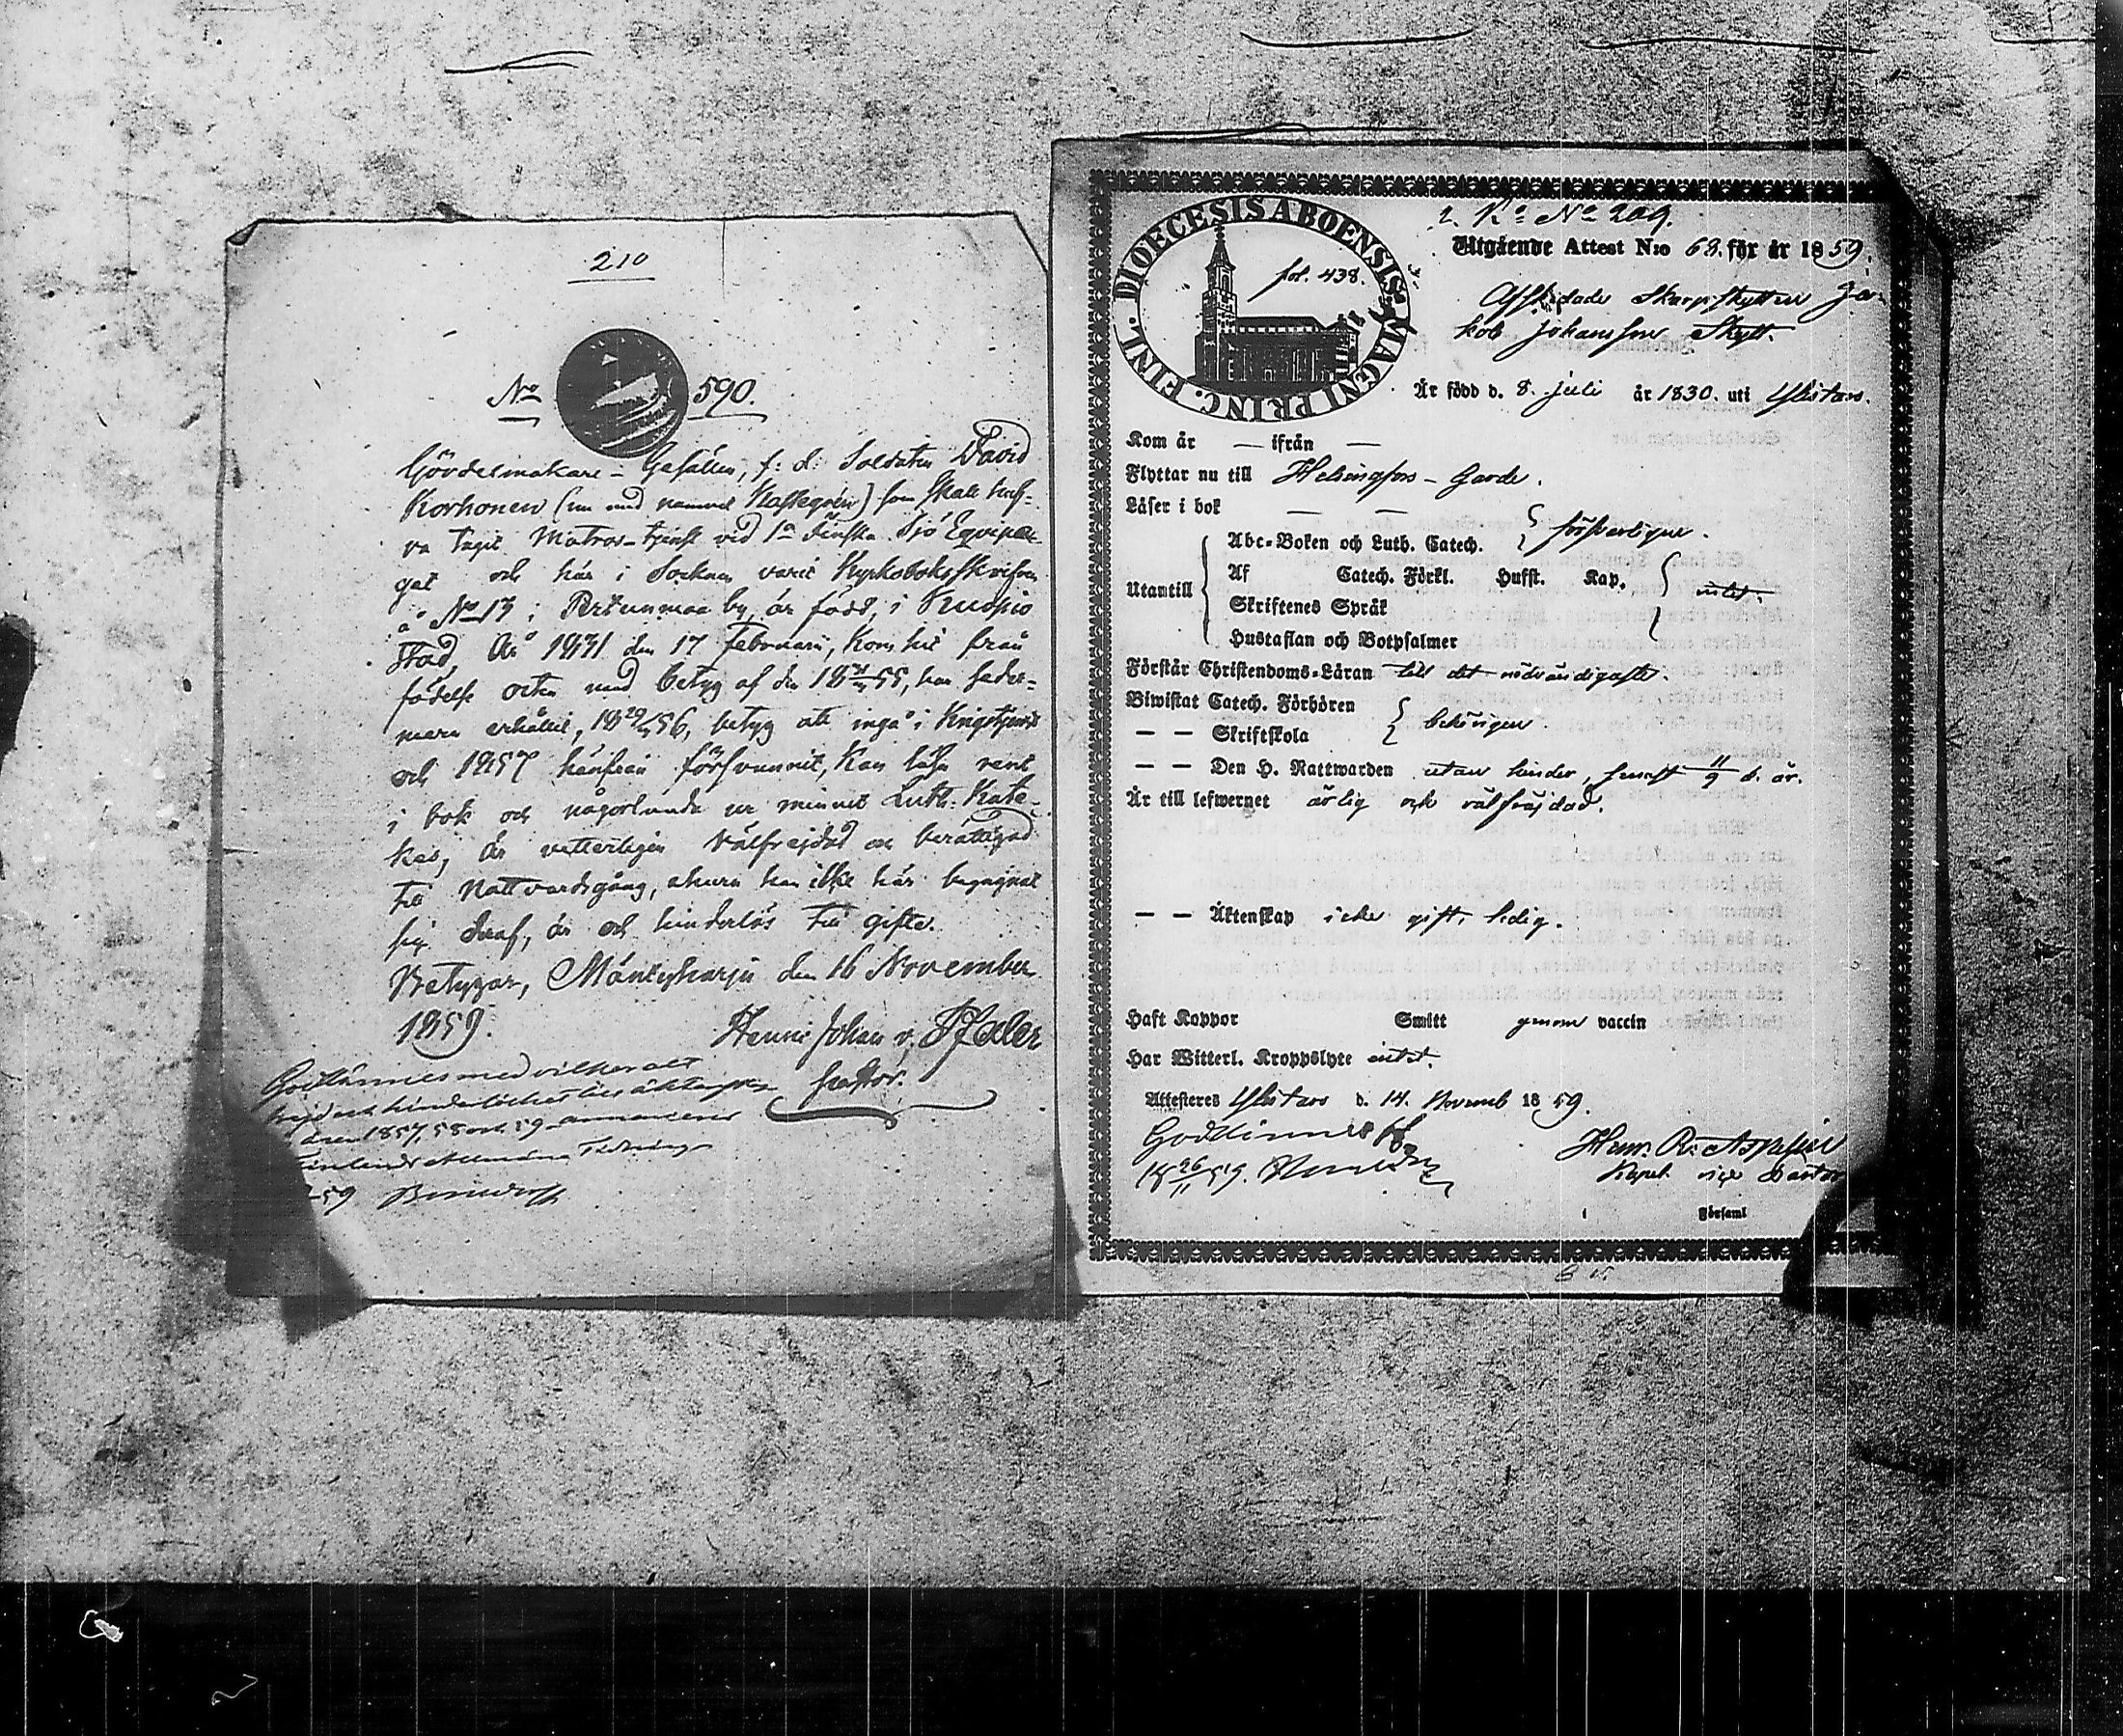 210
No 590.
Gördelmakare-Gesällen, f: d: Soldaten David
Korhonen (nu med namnet ) som skall haf-
va tagit Matros-tjenst ved 1a Finska Sjö Equipa-
get och här i Socknen varit Kyrkobokskrifven
å No 13 i Pertunmaa by, är född i Kuopio
Stad, År 1831 den 17 Februarii, Kom hit från
födelse orten med betyg af den 55, har seder-
mera erhållit, 56, betyg att ingå i Krigstjenst
och 1857 härifrån försvunnit, Kan läsa rent
i bok och någorlunda ur minnet Luth: Kate-
kes, är vetterligen välfrejdad och berättigad
till Nattvardsgång, ehuru han icke här begagnat
sig deraf, är och hinderlös till gifte.
Betygar, Mäntyharju den 16 November
1859. Henric Johan v. Pfaler
Pastor.
Godkännes med vilkor att
frejd och hinderlöshet till äktenskap
åren 1857, 58 och 59 annonceras
Finlands Allmänna Tidning
59
DIOECESIS ABOENSIS MAGNI PRINC. FINL.
fol. 438.
No 209.
Utgående Attest N:o 68. för år 1859.
Afskedade Skarpskytten Ja-
kob Johansson Skytt.
Är född d. 8. Juli år 1830. uti Ylistaro.
Kom år — ifrån —
Flyttar nu till Helsingfors - Garde.
Läser i bok — —
Abc-Boken och Luth. Catech. försvarligen.
Utantill
Af Catech. Förkl. Hufst. Kap. intet.
Skriftenes Språk
Hustaflan och Botpsalmer
Förstår Christendoms-Läran till det nödvändigaste.
Biwistat Catech. Förhören behörigen.
— — Skriftskola
— — Den H. Nattwarden utan hinder, senast 11/9 d. år.
Är till lefwernet ärlig och välfräjdad.
— — Äktenskap icke gift, ledig.
Haft Koppor Smitt genom vaccin
Har Witterl. Kroppslyte intet.
Attesteres Ylistaro d. 14. Novemb 1859.
Godkännes
18 26/11 59.
Henr. R. Aspelin
Kapel. vice Pastor
i Församl